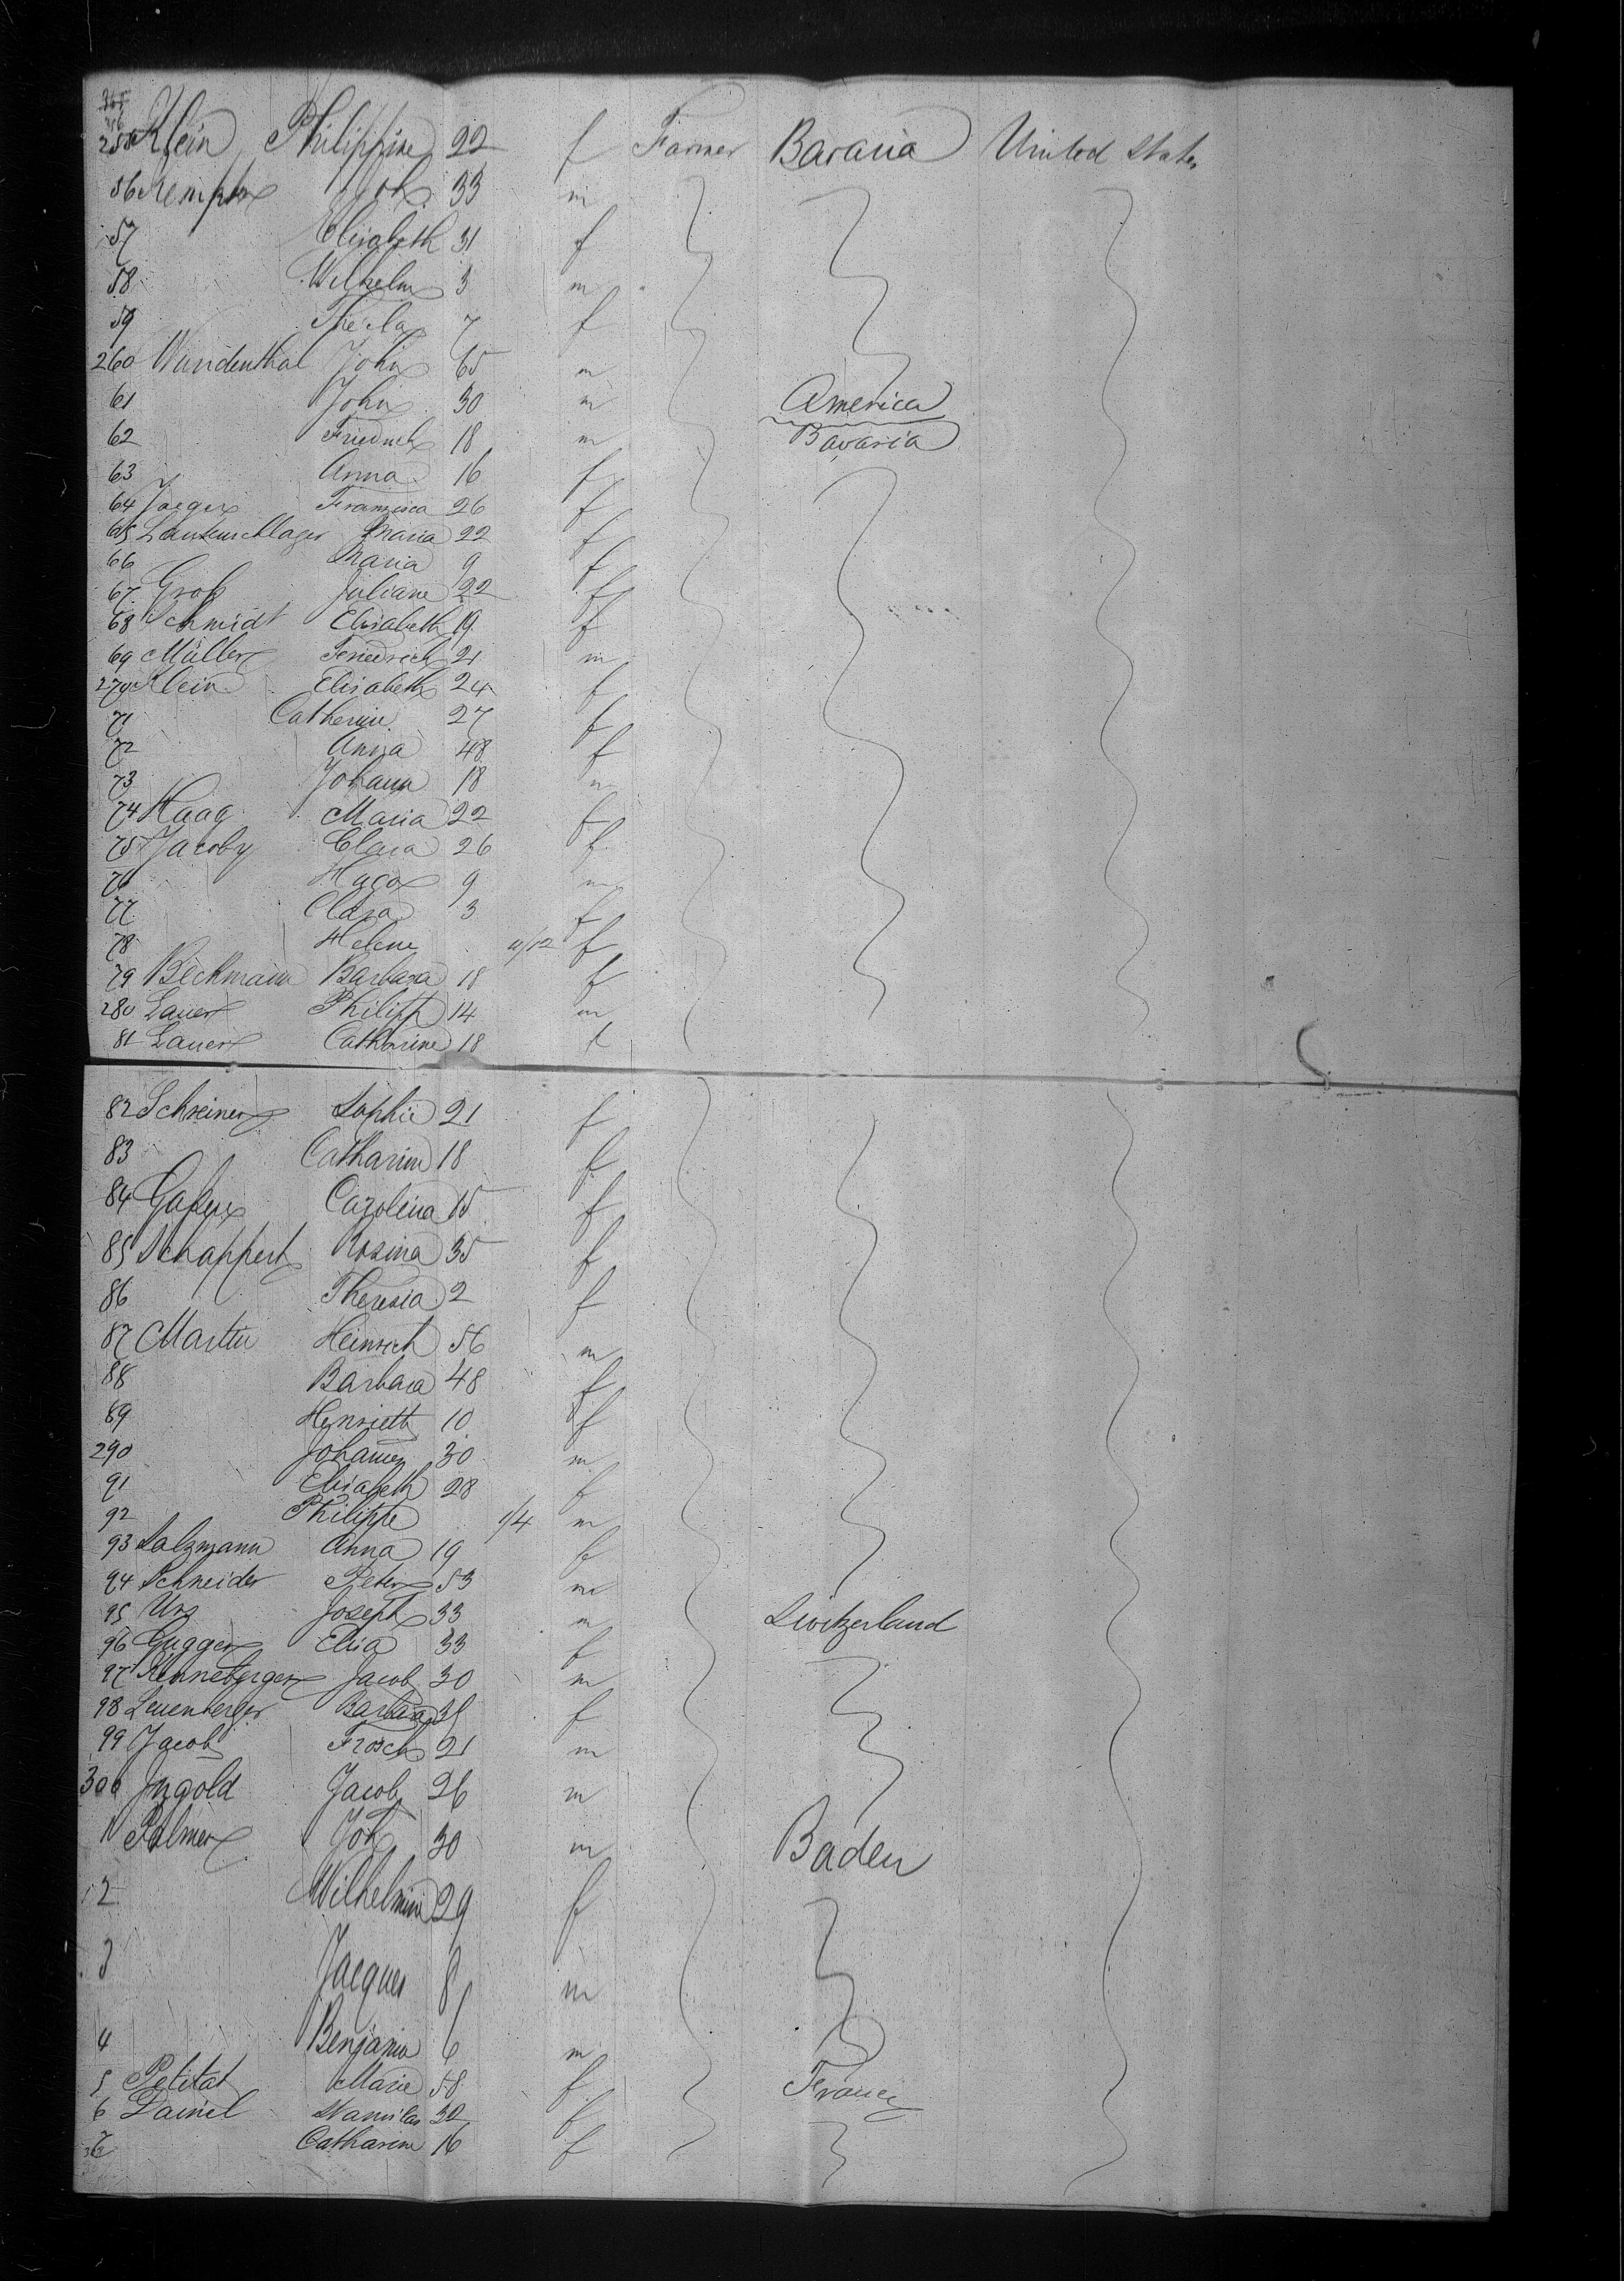 255 Klein Philippine 22 f Farmer Bavaria United States
56 Joh. 33 m
57 Elisabeth 31 f
58 Wilhelm 3 m
59 Thecla 7 f
260 Wundenthal John 65 m
61 John 30 m America
62 Friedrich 18 m Bavaria
63 Anna 16 f
64 Jaeger Franzisca 26 f
65 Lautenschlager Maria 22 f
66 Maria 9 f
67 Groß Juliane 22 f
68 Schmidt Elisabeth 19 f
69 Müller Friedrich 21 m
270 Klein Elisabeth 24 f
71 Catherine 27 f
72 Anna 48 f
73 Johann 18 m
74 Haag Maria 22 f
75 Jacoby Clara 26 f
76 9 m
77 Clara 3 f
78 Helene 11/12 f
79 Beckmann Barbara 18 f
280 Lauer Philipp 14 m
81 Lauer Catharine 18 f
82 Schreiner Sophie 21 f
83 Catharine 18 f
84 Carolina 15 f
85 Schappert Rosina 35 f
86 Theresia 2 f
87 Martin Heinrich 56 m
88 Barbara 48 f
89 Henrieth 10 f
290 Johann 30 m
91 Elisabeth 28 f
92 Philippe 1/4 m
93 Salzmann Anna 19 f
94 Schneider Peter 53 m
95 Urs Joseph 33 m Switzerland
96 Gugger Elisa 33 f
97 Jacob 30 m
98 Leuenberger Barbara f
99 Jacob Frosch 21 m
300 Ingold Jacob 26 m
1 Palmer Joh 30 m Baden
2 Wilhelmine 29 f
3 Jacques 8 m
4 Benjamin 6 m
5 Petitat Marie 58 f France
6 Dainel Stanislas 32 f
7 Catharine 16 f